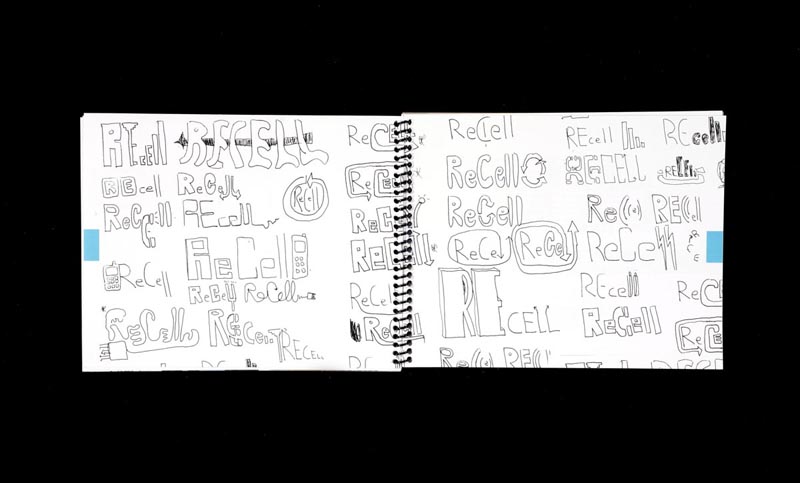 RECell RECELL ReCell
REcell ReCell ReCell ReCell
ReCell REcell ReCell
ReCell ReCell ReCell
ReCell ReCell ReCell
ReCell ReCell RECell ReCell
ReCell REcell REcell
ReCell RECELL RECELL
ReCell Re(( RECell
ReCel ReCel ReCell
RECELL REcell ReCell
ReCell ReCell